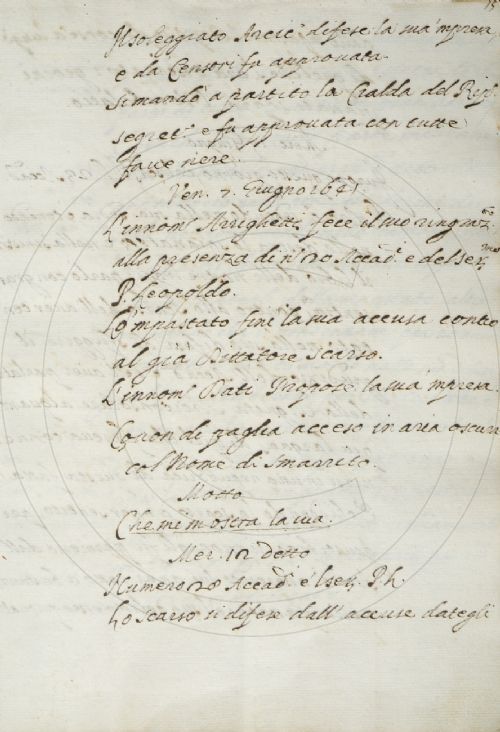 Il soleggiato Arcic.º difese la sua 'mpresa,
e da Censori fu approvata.
Si mandò a partito la Cialda del Rip.
segret.º e fu approvata con tutte
fave nere.
Ven. 7. Giugno 164
L'innom.º Arrighetti fece il suo ringraz.
alla presenza di nº 20 Accad.i e del Ser.mo
P. Leopoldo.
Lo 'mpastato finì la sua accusa contro
al già Dittatore Scarso.
L'innom.º Dati propose la sua 'mpresa
Covon di paglia acceso in aria oscura
col Nome di Smarrito.
Motto
Che mi mostra la via.
Mer. 12 detto
Numero 28 Accad.i e 'l Ser. P. L.
Lo scarso si difese dall' accuse dategli